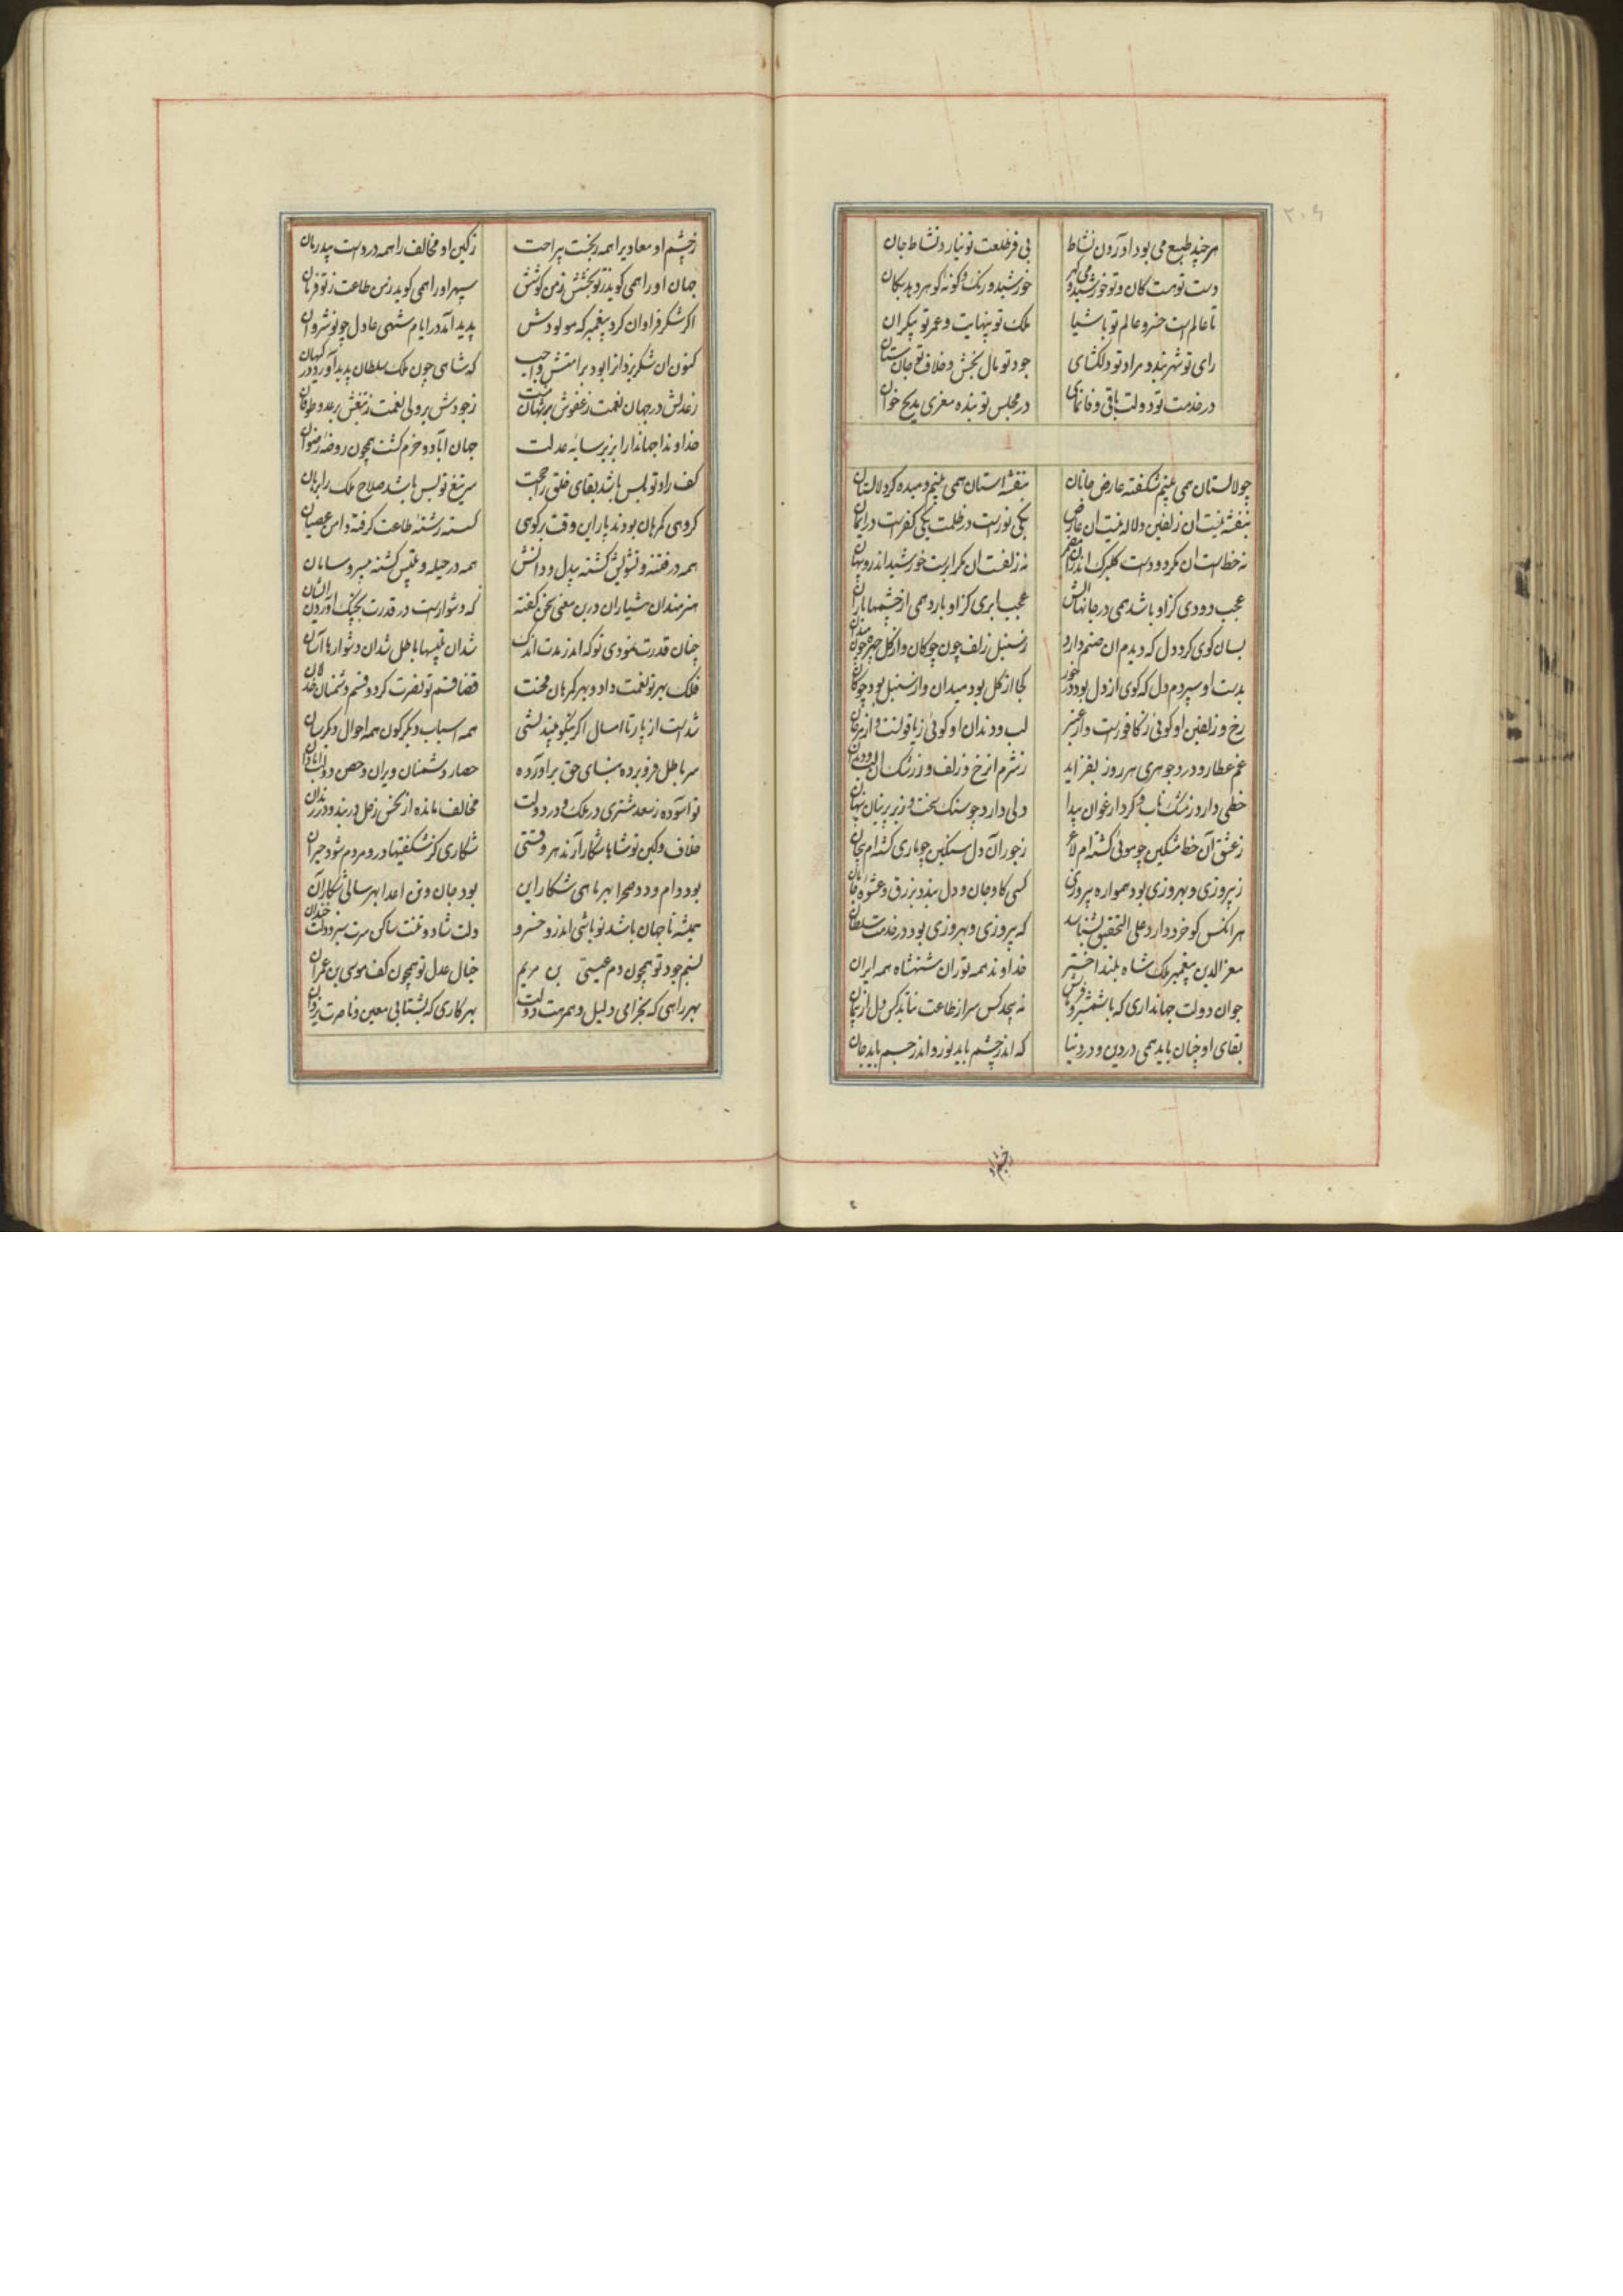 ۲۰۹
هر چند طبع می بود آورون نشاط بی فر طلعت تو نیارد نشاط جان
دست تو هست کان و تو خورشیدی و گهر خورشید و رنک و کونه کوهر دهد بکان
تا عالم است خسرو عالم تو باشیا ملک تو بینهایت و عمر تو بیکران
رای تو شهربند و مراد تو دلکشای جود تو مال بخش و خلاف تو جان ستان
در خدمت تو دولت باقی و فانمای در مجلس تو بنده معزی مدیح خوان
چو لالستان همی بینم شکفته عارض جانان بنفشه استان همی بینم دمیده کرد لالستان
بنفشه نیست آن زلفین و لاله نیست آن عارض یکی نور است در ظلمت یکی کفر است در ایمان
نه خط است آن مکر دود است کلبرک اندران مضمر نه زلفست آن مکر ابریست خورشید اندرو پنهان
عجب دودی کزاو باشد همی در جانها آتش عجب ابری کزاو بارد همی از چشمها باران
بسان کوی کردد دل که دیدم آن صنم دارد ز سنبل زلف چون چوکان و از کل چهره چون میدان
بدست او سپردم دل که کوی از دل بود در خور کجا از کل بود میدان و از سنبل بود چوکان
رخ و زلفین او کوئی ز کافور است و از عنبر لب و دندان او کوئی ز یاقوتست و از مرجان
غم عطار و درد جوهری هر روز بفزاید ز شرم آن رخ و زلف و ز رشک آن لب و دندان
خطی دارد ز مشک ناب و کردار غوان پیدا دلی دارد چو سنک سخت و زیر پرنیان پنهان
ز عشق آن خط مشکین چو موئی کشته‌ام لاغر ز جور آن دل سنکین چو ماری کشته‌ام پیچان
ز پیروزی و بهروزی بود همواره پیروزی کسی کاو جان و دل بندد بزرق و عشوه جانان
هر آنکس کو خرد دارد علی التحقیق بشناسد که پیروزی و بهروزی بود در خدمت سلطان
معزالدین پیغمبر ملک شاه بلند اختر خداوند همه توران شهنشاه همه ایران
جوان دولت جهانداری که با شمشیر و فرمانش نه پیچد کس سر از طاعت نتابد کس دل از پیمان
بقای او چنان باید همی در دین و در دنیا که اندر چشم باید نور و اندر جسم باید جان
ز خشم او
ز خشم او معادی را همه رنجست بی راحت ز کین او مخالف را همه دردست بی درمان
جهان او را همی کوید ز تو بخشش ز من کوشش سپهر او را همی کوید ز من طاعت ز تو فرمان
اکر شکر فراوان کرد پیغمبر که مولودش پدید آمد در ایام شهی عادل چو نوشروان
کنون آن شکر یزدان را بود بر امتش واجب که شاهی چون ملک سلطان پدید آورد در کیهان
ز عدلش در جهان نعمت ز عفوش بر جهان منت ز جودش بر ولی نعمت ز تیغش بر عدو طوفان
خداوندا جهاندارا بزیر سایه عدلت جهان آباد و خرم کشت همچون روضه رضوان
کف راد تو بس باشد بقای خلق را حجت سر تیغ تو بس باشد صلاح ملک را برهان
کروهی کمرهان بودند پار این وقت بر کوهی کسسته رشته طاعت کرفته دامن عصیان
همه در فتنه و تشویش کشته بیدل و دانش همه در حیله و تلبیس کشته بی سر و سامان
هنرمندان هشیاران درین معنی سخن کفته که دشوارست در قدرت بچنک آوردن ایشان
چنان قدرت نمودی تو که اندر مدت اندک شد آن تلبیسها باطل شد آن دشوارها آسان
فلک بهر تو نعمت داد و بهر کمرهان محنت قضا قسم تو نصرت کرد و قسم دشمنان خذلان
شدست از پار تا امسال اکر نیکو بیندیشی همه اسباب دیکرکون همه احوال دیکرسان
سر باطل فرو برده بنای حق برآورده حصار دشمنان ویران و حصن دولت آبادان
تو آسوده ز سعد مشتری در ملک و در دولت مخالف مانده از نحس زحل در بند و در زندان
خلاف و کین تو شاها شکار آرند هر وقتی شکاری کز شکفتیها درو مردم شود حیران
بود دام و دد صحرا بهر ماهی شکار این بود جان و تن اعدا بهر سالی شکار آن
همیشه تا جهان باشد تو باشی اندرو خسرو دلت شاد و تنت ساکن سرت سبز و دولت خندان
نسیم جود تو همچون دم عیسی بن مریم خیال عدل تو همچون کف موسی بن عمران
بهر راهی که بخرامی دلیل و همرهت دولت بهر کاری که بشتابی معین و ناصرت یزدان